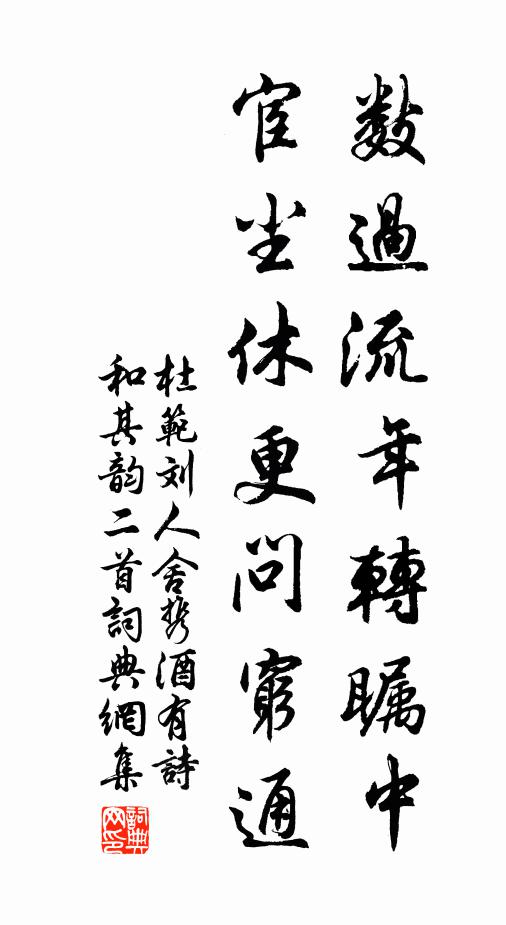 数過流年轉瞩中
宦尘休更問窮通
杜範刘人舍携酒有詩
和其韵二首詞典網集
詞典网印